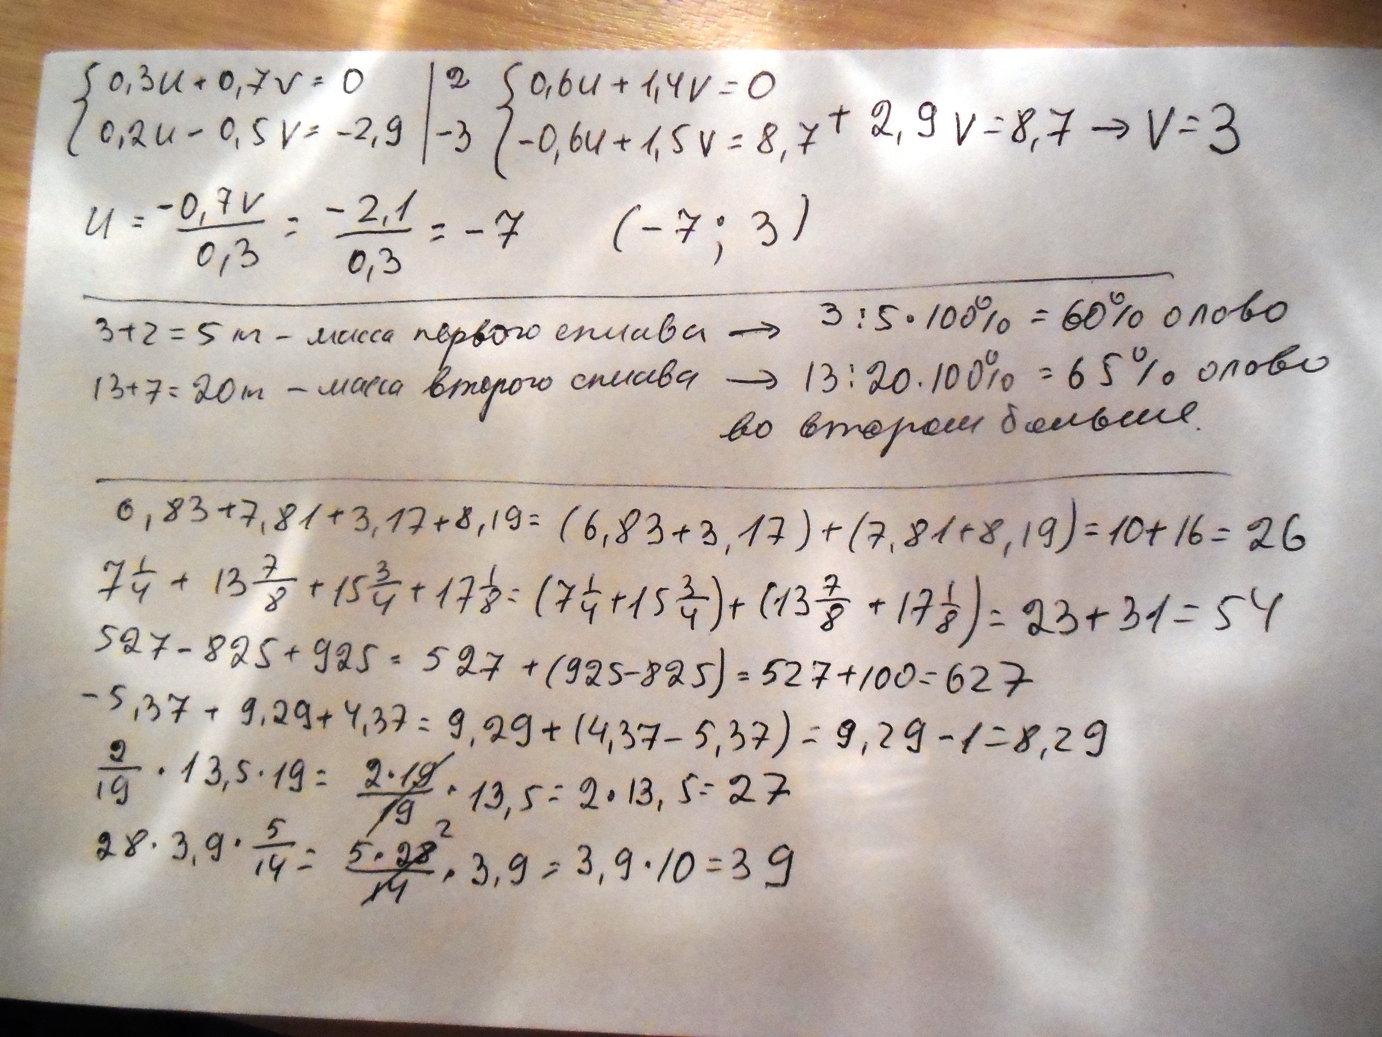 {0,3u + 0,7v = 0 | 2 {0,6u + 1,4v = 0
{0,2u - 0,5v = -2,9 | -3 {-0,6u + 1,5v = 8,7 + 2,9v = 8,7 → v = 3
u = -0,7v/0,3 = -2,1/0,3 = -7 (-7; 3)
3+2 = 5 т - масса первого сплава → 3:5·100% = 60% олово
13+7 = 20т - масса второго сплава → 13:20·100% = 65% олово
во втором больше.
6,83+7,81+3,17+8,19 = (6,83+3,17)+(7,81+8,19) = 10+16 = 26
7 1/4 + 13 7/8 + 15 3/4 + 17 1/8 = (7 1/4 + 15 3/4) + (13 7/8 + 17 1/8) = 23+31 = 54
527 - 825 + 925 = 527 + (925-825) = 527+100 = 627
-5,37 + 9,29 + 4,37 = 9,29 + (4,37 - 5,37) = 9,29 - 1 = 8,29
2/19 · 13,5 · 19 = 2·19/19 · 13,5 = 2·13,5 = 27
28 · 3,9 · 5/14 = 5·28 2/14 · 3,9 = 3,9·10 = 39